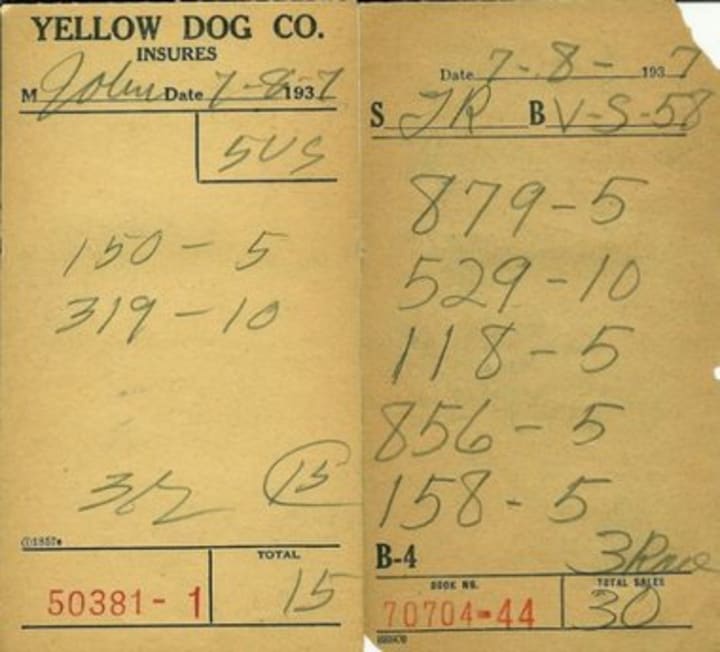 YELLOW DOG CO.
INSURES
M John Date 7-8- 1937
5US
150 - 5
319 - 10
15
TOTAL
50381- 1 15
Date 7-8- 1937
S JR B V-S-58
879-5
529-10
118-5
856-5
158-5
B-4 3 Race
BOOK NO. TOTAL SALES
70704-44 30